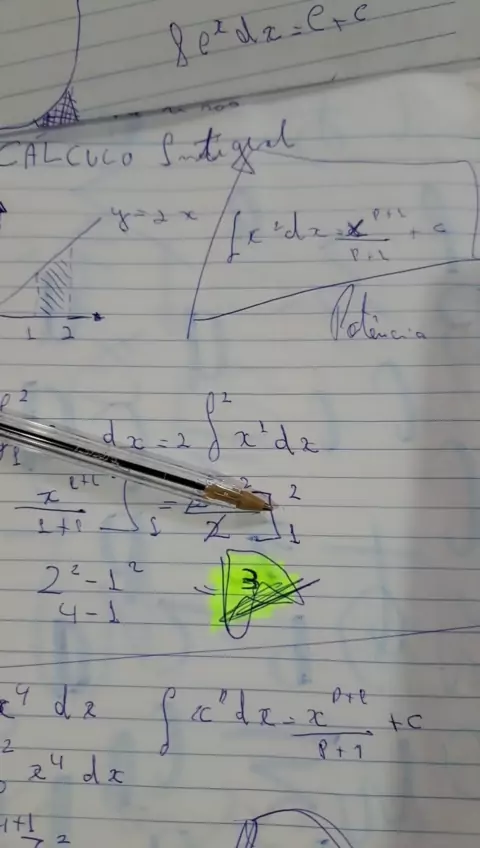 ∫e^x dx = e + c
CÁLCULO Integral
y = 2x
∫x^1 dx = x^(p+1)/(p+1) + c
1 2
Potência
dx = 2 ∫^2 x^1 dx
x^(1+1)/(1+1) ]_1 = 2 ]_1^2
2^2 - 1^2
4 - 1
= 3
x^4 dx ∫x^p dx = x^(p+1)/(p+1) + c
x^4 dx
4+1
2